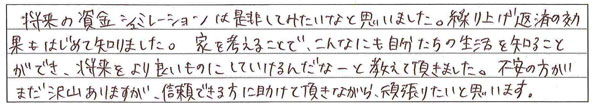 将来の資金シュミレーションは是非してみたいなと思いました。繰り上げ返済の効
果もはじめて知りました。 家を考えることで、こんなにも自分たちの生活を知ること
ができ、将来をより良いものにしていけるんだなーと教えて頂きました。不安の方が
まだ沢山ありますが、信頼できる方に助けて頂きながら、頑張りたいと思います。